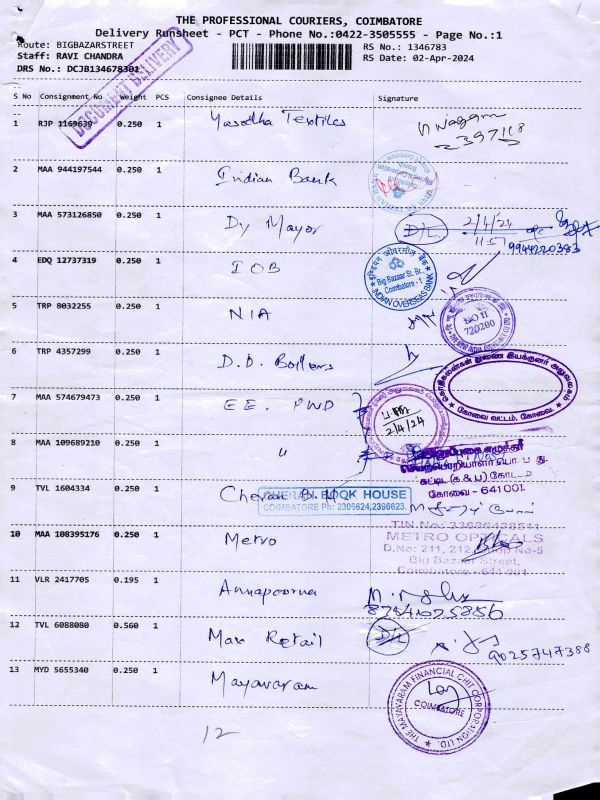 THE PROFESSIONAL COURIERS, COIMBATORE
Delivery Runsheet - PCT - Phone No.:0422-3505555 - Page No.:1
Route: BIGBAZARSTREET
RS No.: 1346783
Staff: RAVI CHANDRA
RS Date: 02-Apr-2024
DRS No.: DCJB134678301
DOCUMENT DELIVERY
S No Consignment No Weight PCS Consignee Details Signature
1 RJP 1169639 0.250 1 Yasodha Textiles
2 MAA 944197544 0.250 1 Indian Bank
3 MAA 573126850 0.250 1 Dy Mayor D/L 2/4/24
4 EDQ 12737319 0.250 1 IOB
Big Bazaar St. Br.
Coimbatore - 1
INDIAN OVERSEAS BANK
5 TRP 8032255 0.250 1 NIA
DO II
720200
6 TRP 4357299 0.250 1 D.D. Boilers
கோவை வட்டம், கோவை.
7 MAA 574679473 0.250 1 EE. PWD
2/4/24
8 MAA 109689210 0.250 1 "
கோவை - 641 001.
9 TVL 1604334 0.250 1 Cheran B.H
CHERAN BOOK HOUSE
COIMBATORE Ph: 2306624,2396623.
10 MAA 108395176 0.250 1 Metro
METRO OPTICALS
D.No: 211, 212, Shop No-5
Big Bazaar Street,
Coimbatore - 641 001
11 VLR 2417705 0.195 1 Annapoorna
12 TVL 6088080 0.560 1 Max Retail D/L
9025747388
13 MYD 5655340 0.250 1 Mayavaram
THE MAYAVARAM FINANCIAL CHIT CORPORATION LTD.
COIMBATORE
12